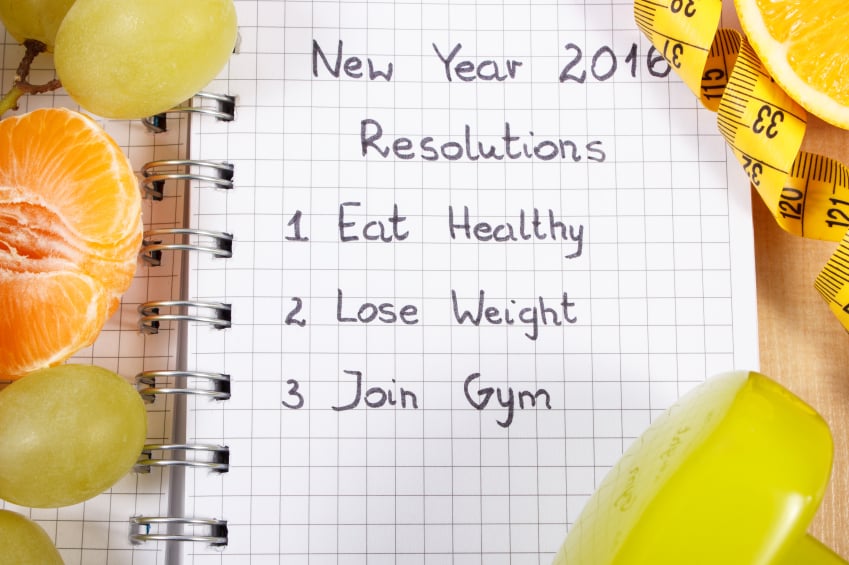 New Year 2016
Resolutions
1 Eat Healthy
2 Lose Weight
3 Join Gym
31
115
33
32
120
121